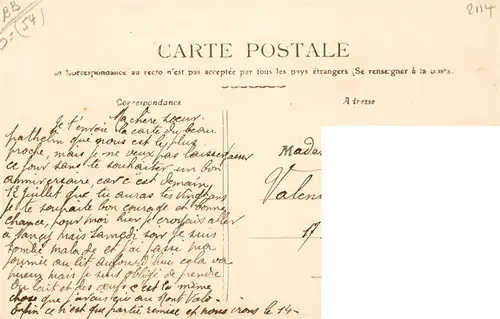 BB
(54)
2114
CARTE POSTALE
La Correspondance au recto n'est pas acceptée par tous les pays étrangers (Se renseigner à la Poste)
Correspondance
Adresse
Ma chère sœur
Je t'envoie la carte du beau
que nous est le plus
proche, mais je ne veux pas laisser
ce jour sans te souhaiter un bon
anniversaire, car c'est demain
13 juillet que tu auras tes vingt ans
je te souhaite bon courage et bonne
chance, pour moi hier je croyais aller
à Nancy mais Samedi soir je suis
tombé malade et j'ai passé ma
journée au lit aujourd'hui cela va
mieux mais je suis obligé de prendre
du lait et des œufs c'est la même
chose que j'avais eu au Mont Vale
Enfin ce n'est que partie remise et nous irons le 14
Mada
Valen
17